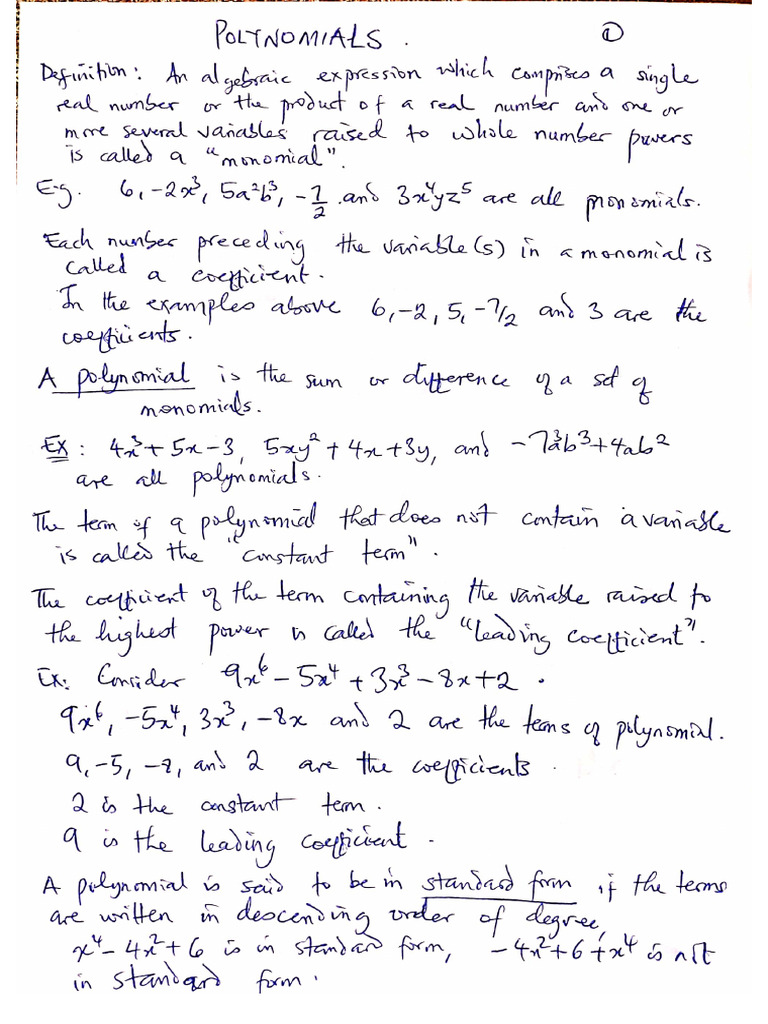 POLYNOMIALS. ①
Definition: An algebraic expression which comprises a single
real number or the product of a real number and one or
more several variables raised to whole number powers
is called a "monomial".
E.g. 6, -2x³, 5a²b³, -7/2 and 3x⁴yz⁵ are all monomials.
Each number preceding the variable(s) in a monomial is
called a coefficient.
In the examples above 6, -2, 5, -7/2 and 3 are the
coefficients.
A polynomial is the sum or difference of a set of
monomials.
EX: 4x³+5x-3, 5xy²+4x+3y, and -7a³b³+4ab²
are all polynomials.
The term of a polynomial that does not contain a variable
is called the "constant term".
The coefficient of the term containing the variable raised to
the highest power is called the "leading coefficient".
Ex: Consider 9x⁶-5x⁴+3x³-8x+2.
9x⁶, -5x⁴, 3x³, -8x and 2 are the terms of polynomial.
9, -5, -8, and 2 are the coefficients.
2 is the constant term.
9 is the leading coefficient.
A polynomial is said to be in standard form if the terms
are written in descending order of degree,
x⁴-4x²+6 is in standard form, -4x²+6+x⁴ is not
in standard form.